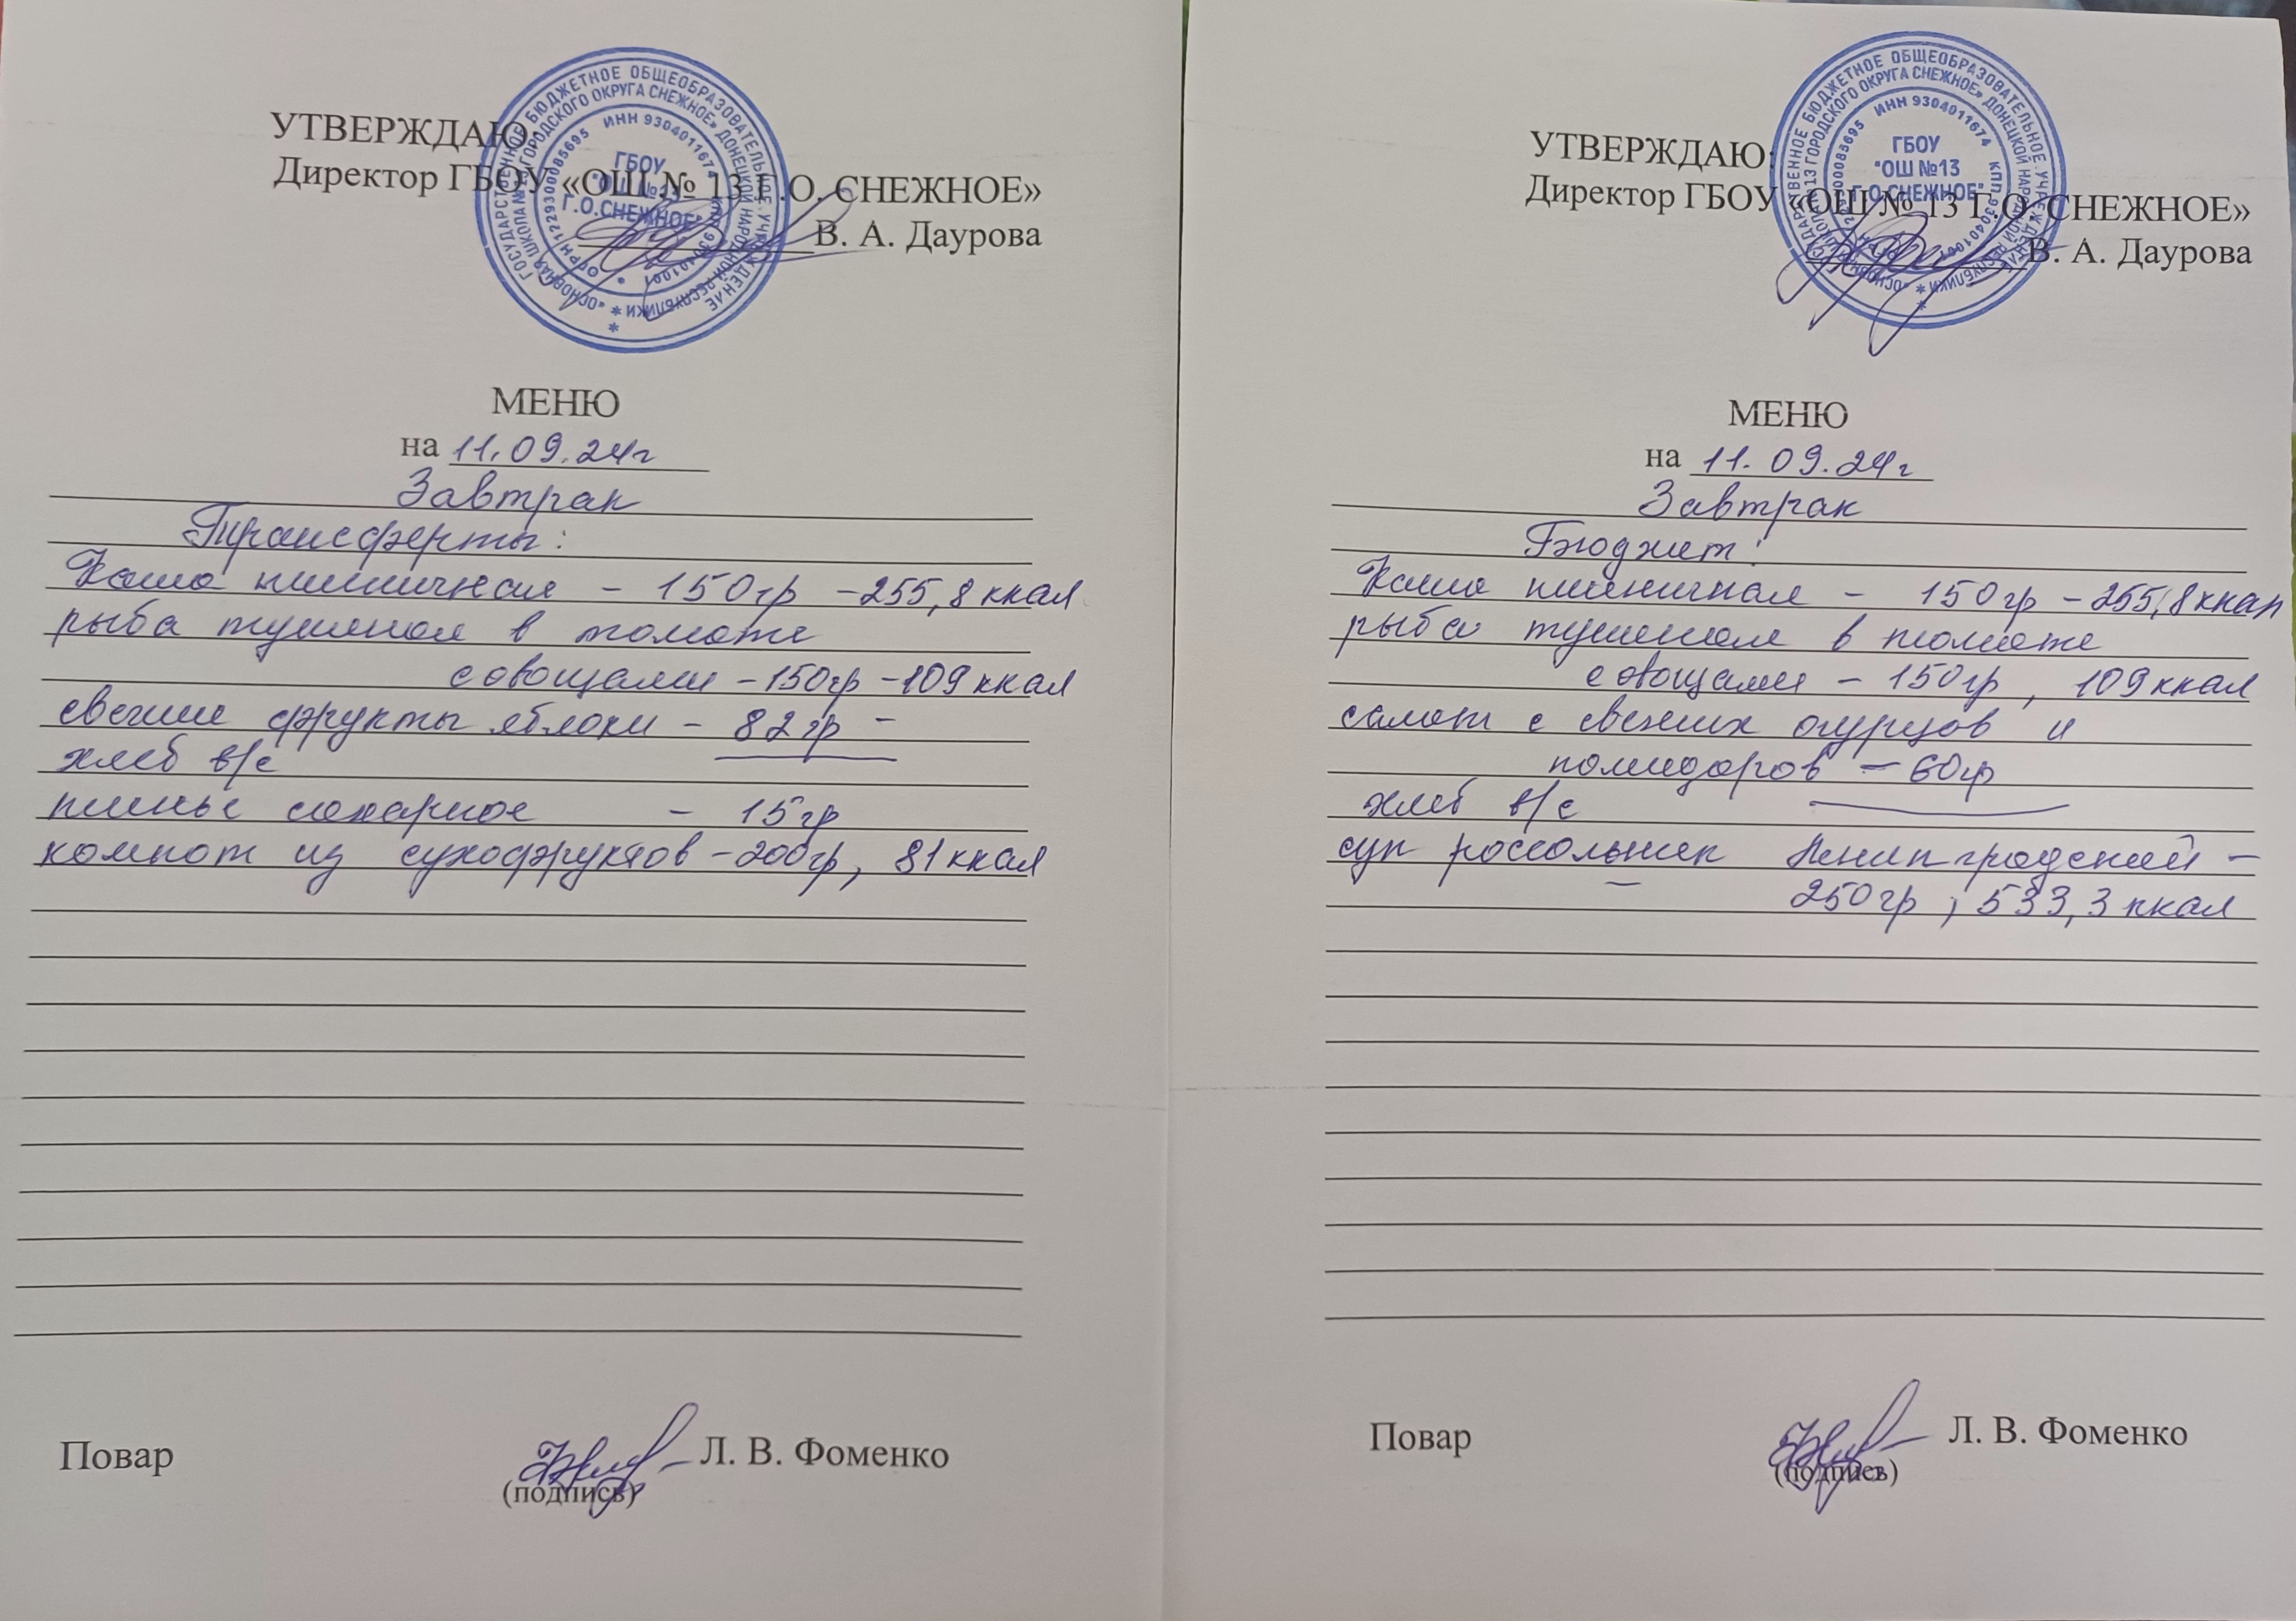 УТВЕРЖДАЮ:
Директор ГБОУ «ОШ № 13 Г.О. СНЕЖНОЕ»
В. А. Даурова
ГОСУДАРСТВЕННОЕ БЮДЖЕТНОЕ ОБЩЕОБРАЗОВАТЕЛЬНОЕ УЧРЕЖДЕНИЕ
«ОСНОВНАЯ ШКОЛА №13 ГОРОДСКОГО ОКРУГА СНЕЖНОЕ» ДОНЕЦКОЙ НАРОДНОЙ РЕСПУБЛИКИ
ИНН 9304011674
ГБОУ
"ОШ №13
Г.О.СНЕЖНОЕ"
МЕНЮ
на 11.09.24г
Завтрак
Трансферты:
Каша пшеничная - 150гр - 255,8 ккал
рыба тушеная в томате
с овощами - 150гр - 109 ккал
свежие фрукты яблоки - 82 гр -
хлеб в/с
пиченье сахарное - 15 гр
компот из сухофруктов - 200гр, 81 ккал
Повар
Л. В. Фоменко
(подпись)
УТВЕРЖДАЮ:
Директор ГБОУ «ОШ № 13 Г.О. СНЕЖНОЕ»
В. А. Даурова
ГОСУДАРСТВЕННОЕ БЮДЖЕТНОЕ ОБЩЕОБРАЗОВАТЕЛЬНОЕ УЧРЕЖДЕНИЕ
«ОСНОВНАЯ ШКОЛА №13 ГОРОДСКОГО ОКРУГА СНЕЖНОЕ» ДОНЕЦКОЙ НАРОДНОЙ РЕСПУБЛИКИ
ИНН 9304011674
ГБОУ
"ОШ №13
Г.О.СНЕЖНОЕ"
МЕНЮ
на 11.09.24г
Завтрак
Бюджет:
Каша пшеничная - 150гр - 255,8 ккал
рыба тушеная в томате
с овощами - 150гр, 109 ккал
салат с свежих огурцов и
помидоров - 60гр
хлеб в/с
суп россольник Ленинградский -
250гр, 533,3 ккал
Повар
Л. В. Фоменко
(подпись)